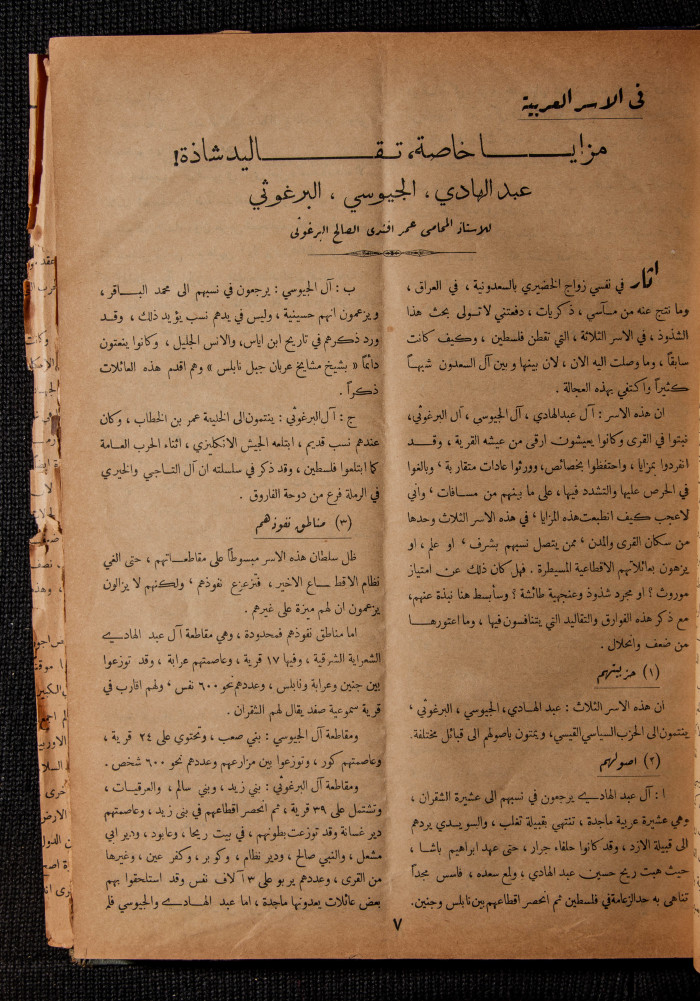 في الاسر العربية
مزايا خاصة، تقاليد شاذة!
عبد الهادي، الجيوسي، البرغوثي
للاستاذ المحامي عمر افندي الصالح البرغوثي
اثار في نفسي زواج الخضيري بالسعدونية، في العراق،
وما نتج عنه من مآسي، ذكريات، دفعتني لاتولى بحث هذا
الشذوذ، في الاسر الثلاثة، التي تقطن فلسطين، وكيف كانت
سابقاً، وما وصلت اليه الان، لان بينها وبين آل السعدون شبهاً
كثيراً واكتفي بهذه العجالة.
ان هذه الاسر: آل عبد الهادي، آل الجيوسى، آل البرغوثي،
نبتوا في القرى وكانوا يعيشون ارقى من عيشه القرية، وقد
انفردوا بمزايا، واحتفظوا بخصائص، وورثوا عادات متقاربة، وبالغوا
في الحرص عليها والتشدد فيها، على ما بينهم من مسافات، واني
لاعجب كيف انطبعت هذه المزايا، في هذه الاسر الثلاث وحدها
من سكان القرى والمدن، ممن يتصل نسبهم بشرف، او علم، او
يزهون بعائلاتهم الاقطاعية المسيطرة. فهل كان ذلك عن امتياز
موروث؟ او مجرد شذوذ وعنجهية طائشة؟ وسأبسط هنا نبذة عنهم،
مع ذكر هذه الفوارق والتقاليد التي يتنافسون فيها، وما اعتورها
من ضعف وانحلال.
(١) حزبيتهم
ان هذه الاسر الثلاث: عبد الهادي، الجيوسي، البرغوثي،
ينتمون الى الحزب السياسي القيسي، ويمتون باصولهم الى قبائل مختلفة.
(٢) اصولهم
ا: آل عبد الهادي يرجعون في نسبهم الى عشيرة الشقران،
وهي عشيرة عربية ماجدة، تنتهي بقبيلة تغلب، والسويدي يردهم
الى قبيلة الازد، وقد كانوا حلفاء جرار، حتى عهد ابراهيم باشا،
حيث هبت ريح حسين عبد الهادي، ولمع سعده، فاسس مجداً
تناهى به حد الزعامة في فلسطين ثم انحصر اقطاعهم بين نابلس وجنين.
ب: آل الجيوسي: يرجعون في نسبهم الى محمد الباقر،
ويزعمون انهم حسينية، وليس في يدهم نسب يؤيد ذلك، وقد
ورد ذكرهم في تاريخ ابن اياس، والانس الجليل، وكانوا ينعتون
دائماً « بشيخ مشايخ عربان جبل نابلس » وهم اقدم هذه العائلات
ذكراً.
ج: آل البرغوثي: ينتمون الى الخليفة عمر بن الخطاب، وكان
عندهم نسب قديم، ابتلعه الجيش الانكليزي، اثناء الحرب العامة
كما ابتلعوا فلسطين، وقد ذكر في سلسلته ان آل التاجي والخيري
في الرملة فرع من دوحة الفاروق.
(٣) مناطق نفوذهم
ظل سلطان هذه الاسر مبسوطاً على مقاطعاتهم، حتى الغي
نظام الاقطاع الاخير، فتزعزع نفوذهم، ولكنهم لا يزالون
يزعمون ان لهم ميزة على غيرهم.
اما مناطق نفوذهم فمحدودة، وهي مقاطعة آل عبد الهادي
الشعراية الشرقية، وفيها ١٧ قرية، وعاصمتهم عرابة، وقد توزعوا
بين جنين وعرابة ونابلس، وعددهم نحو ٦٠٠ نفس، ولهم اقارب في
قرية سموعية صفد يقال لهم الشقران.
ومقاطعة آل الجيوسي: بني صعب، وتحتوي على ٢٤ قرية،
وعاصمتهم كور، وتوزعوا بين مزارعهم وعددهم نحو ٦٠٠ شخص.
ومقاطعة آل البرغوثي: بني زيد، وبني سالم، والعرقيات،
وتشتمل على ٣٩ قرية، ثم انحصر اقطاعهم في بني زيد، وعاصمتهم
دير غسانة وقد توزعت بطونهم، في بيت ريحا، وعابود، ودير ابي
مشعل، والنبي صالح، ودير نظام، وكوبر، وكفر عين، وغيرها
من القرى، وعددهم يربو على ٣ آلاف نفس وقد استلحقوا بهم
بعض عائلات يعدونها ماجدة، اما عبد الهادي والجيوسي فلم
٧